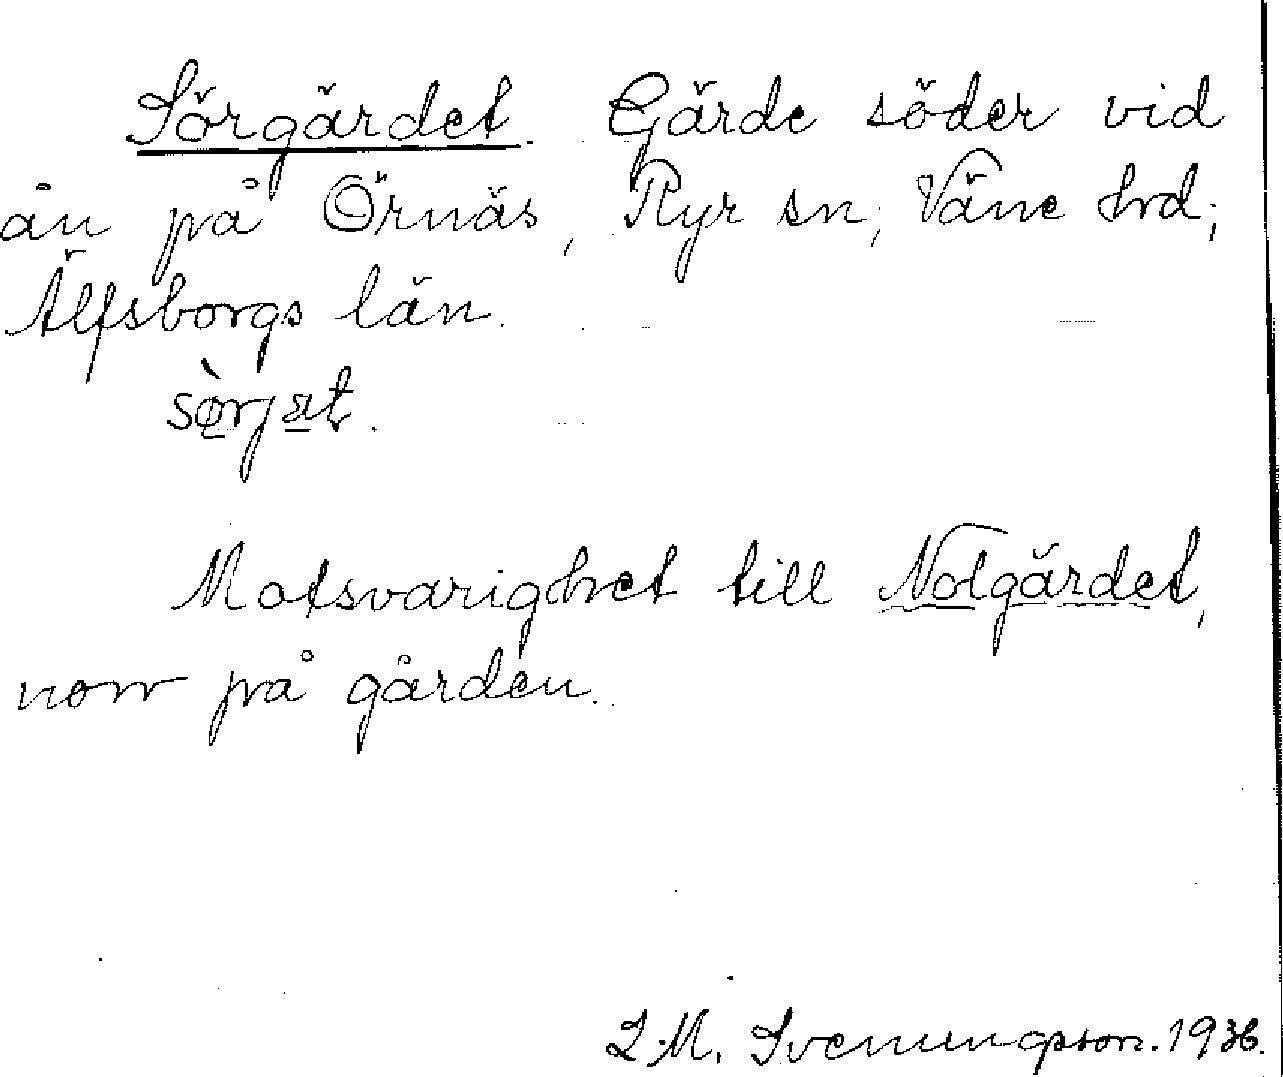 Sörgärdet. Gärde söder vid
ån på Örnäs, Ryr sn, Väne hrd,
Älfsborgs län.
sö̀rjat.
Motsvarighet till Nolgärdet,
norr på gården.
L.M. Svenungsson. 1936.